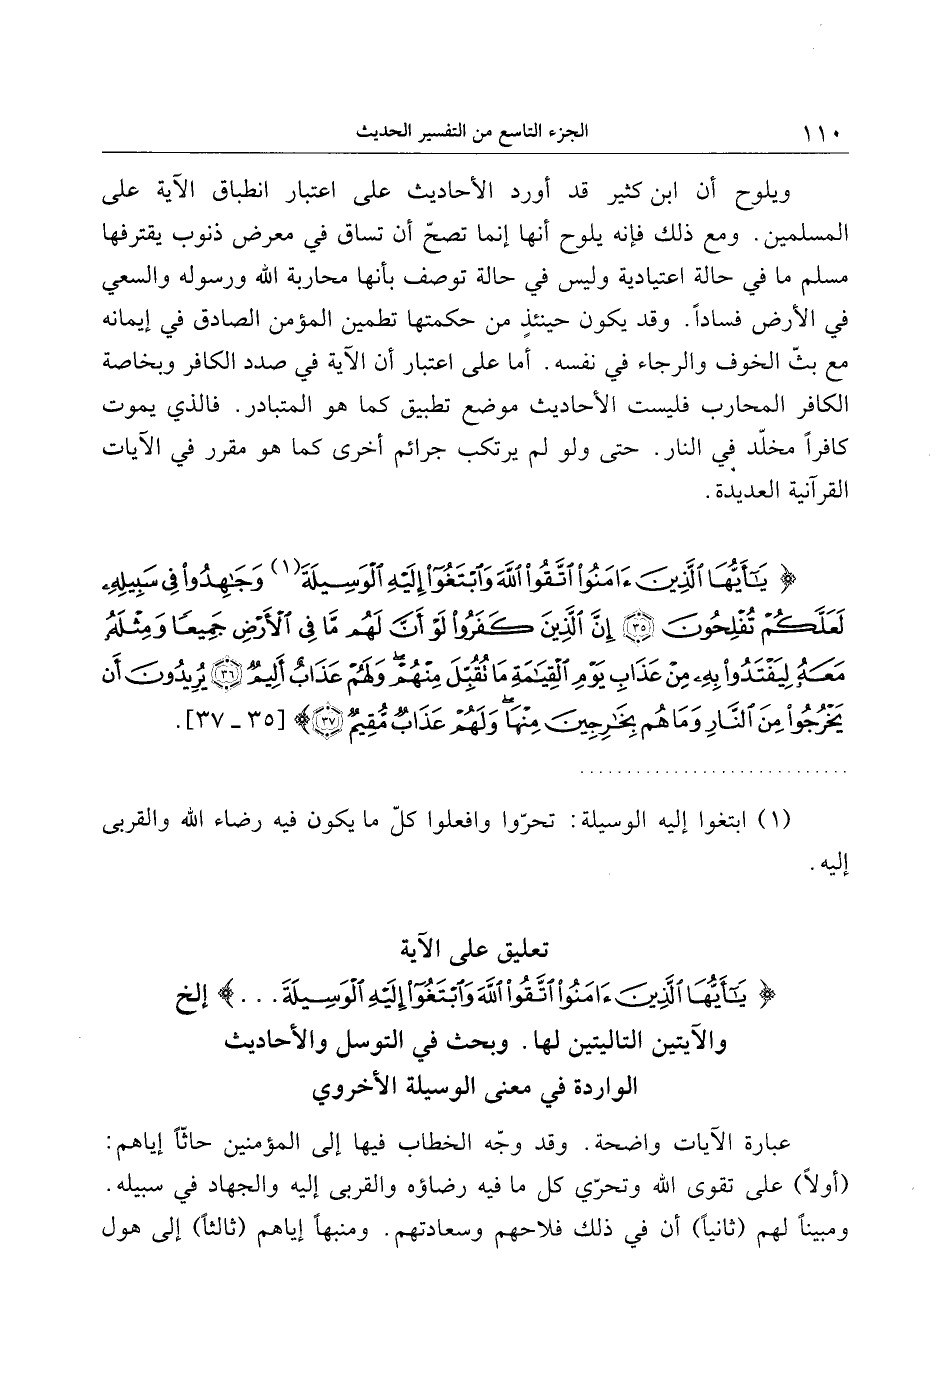 ١١٠ الجزء التاسع من التفسير الحديث
ويلوح أن ابن كثير قد أورد الأحاديث على اعتبار انطباق الآية على
المسلمين. ومع ذلك فإنه يلوح أنها إنما تصحّ أن تساق في معرض ذنوب يقترفها
مسلم ما في حالة اعتيادية وليس في حالة توصف بأنها محاربة الله ورسوله والسعي
في الأرض فساداً. وقد يكون حينئذٍ من حكمتها تطمين المؤمن الصادق في إيمانه
مع بثّ الخوف والرجاء في نفسه. أما على اعتبار أن الآية في صدد الكافر وبخاصة
الكافر المحارب فليست الأحاديث موضع تطبيق كما هو المتبادر. فالذي يموت
كافراً مخلّد في النار. حتى ولو لم يرتكب جرائم أخرى كما هو مقرر في الآيات
القرآنية العديدة.
﴿ يَٰٓأَيُّهَا ٱلَّذِينَ ءَامَنُوا۟ ٱتَّقُوا۟ ٱللَّهَ وَٱبْتَغُوٓا۟ إِلَيْهِ ٱلْوَسِيلَةَ(١) وَجَٰهِدُوا۟ فِى سَبِيلِهِۦ
لَعَلَّكُمْ تُفْلِحُونَ ٣٥ إِنَّ ٱلَّذِينَ كَفَرُوا۟ لَوْ أَنَّ لَهُم مَّا فِى ٱلْأَرْضِ جَمِيعًا وَمِثْلَهُۥ
مَعَهُۥ لِيَفْتَدُوا۟ بِهِۦ مِنْ عَذَابِ يَوْمِ ٱلْقِيَٰمَةِ مَا تُقُبِّلَ مِنْهُمْ ۖ وَلَهُمْ عَذَابٌ أَلِيمٌ ٣٦ يُرِيدُونَ أَن
يَخْرُجُوا۟ مِنَ ٱلنَّارِ وَمَا هُم بِخَٰرِجِينَ مِنْهَا ۖ وَلَهُمْ عَذَابٌ مُّقِيمٌ ٣٧﴾ [٣٥ ـ ٣٧].
............................
(١) ابتغوا إليه الوسيلة: تحرّوا وافعلوا كلّ ما يكون فيه رضاء الله والقربى
إليه.
تعليق على الآية
﴿ يَٰٓأَيُّهَا ٱلَّذِينَ ءَامَنُوا۟ ٱتَّقُوا۟ ٱللَّهَ وَٱبْتَغُوٓا۟ إِلَيْهِ ٱلْوَسِيلَةَ...﴾ إلخ
والآيتين التاليتين لها. وبحث في التوسل والأحاديث
الواردة في معنى الوسيلة الأخروي
عبارة الآيات واضحة. وقد وجّه الخطاب فيها إلى المؤمنين حاثّاً إياهم:
(أولاً) على تقوى الله وتحرّي كل ما فيه رضاؤه والقربى إليه والجهاد في سبيله.
ومبيناً لهم (ثانياً) أن في ذلك فلاحهم وسعادتهم. ومنبهاً إياهم (ثالثاً) إلى هول